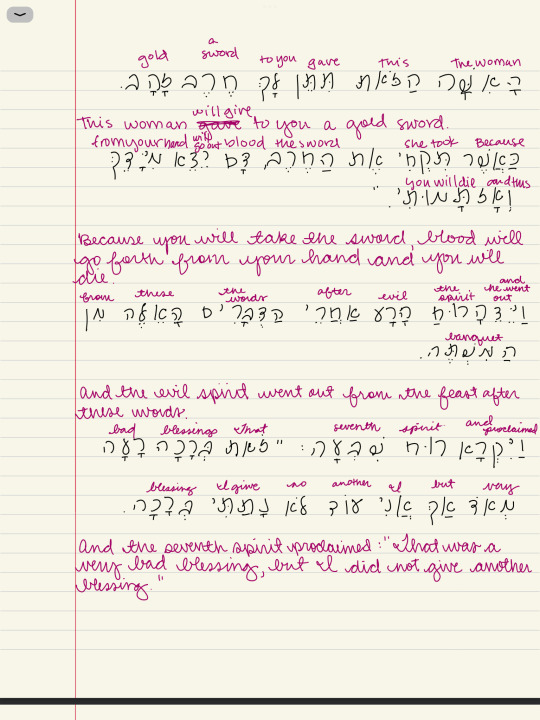 a
gold sword to you gave this The woman
הָאִשָּׁה הַזֹּאת תִּתֵּן לָךְ חֶרֶב זָהָב.
will give
This woman gave to you a gold sword.
from your hand will go out blood the sword she took Because
כַּאֲשֶׁר תִּקְחִי אֶת הַחֶרֶב, דָּם יֵצֵא מִיָּדֵךְ
you will die and thus
וְאָז תָּמוּתִי."
Because you will take the sword, blood will
go forth from your hand and you will
die.
from these the words after evil the spirit and he went out
הָרוּחַ הָרָע אַחֲרֵי הַדְּבָרִים הָאֵלֶּה מִן
banquet
הַמִּשְׁתֶּה.
And the evil spirit went out from the feast after
these words.
bad blessings that seventh spirit and proclaimed
וַיִּקְרָא רוּחַ שִׁבְעָה: "זֹאת בְּרָכָה רָעָה
blessing I give no another I but very
מְאֹד אַךְ אֲנִי עוֹד לֹא נָתַתִּי בְּרָכָה.
And the seventh spirit proclaimed: "That was a
very bad blessing, but I did not give another
blessing."